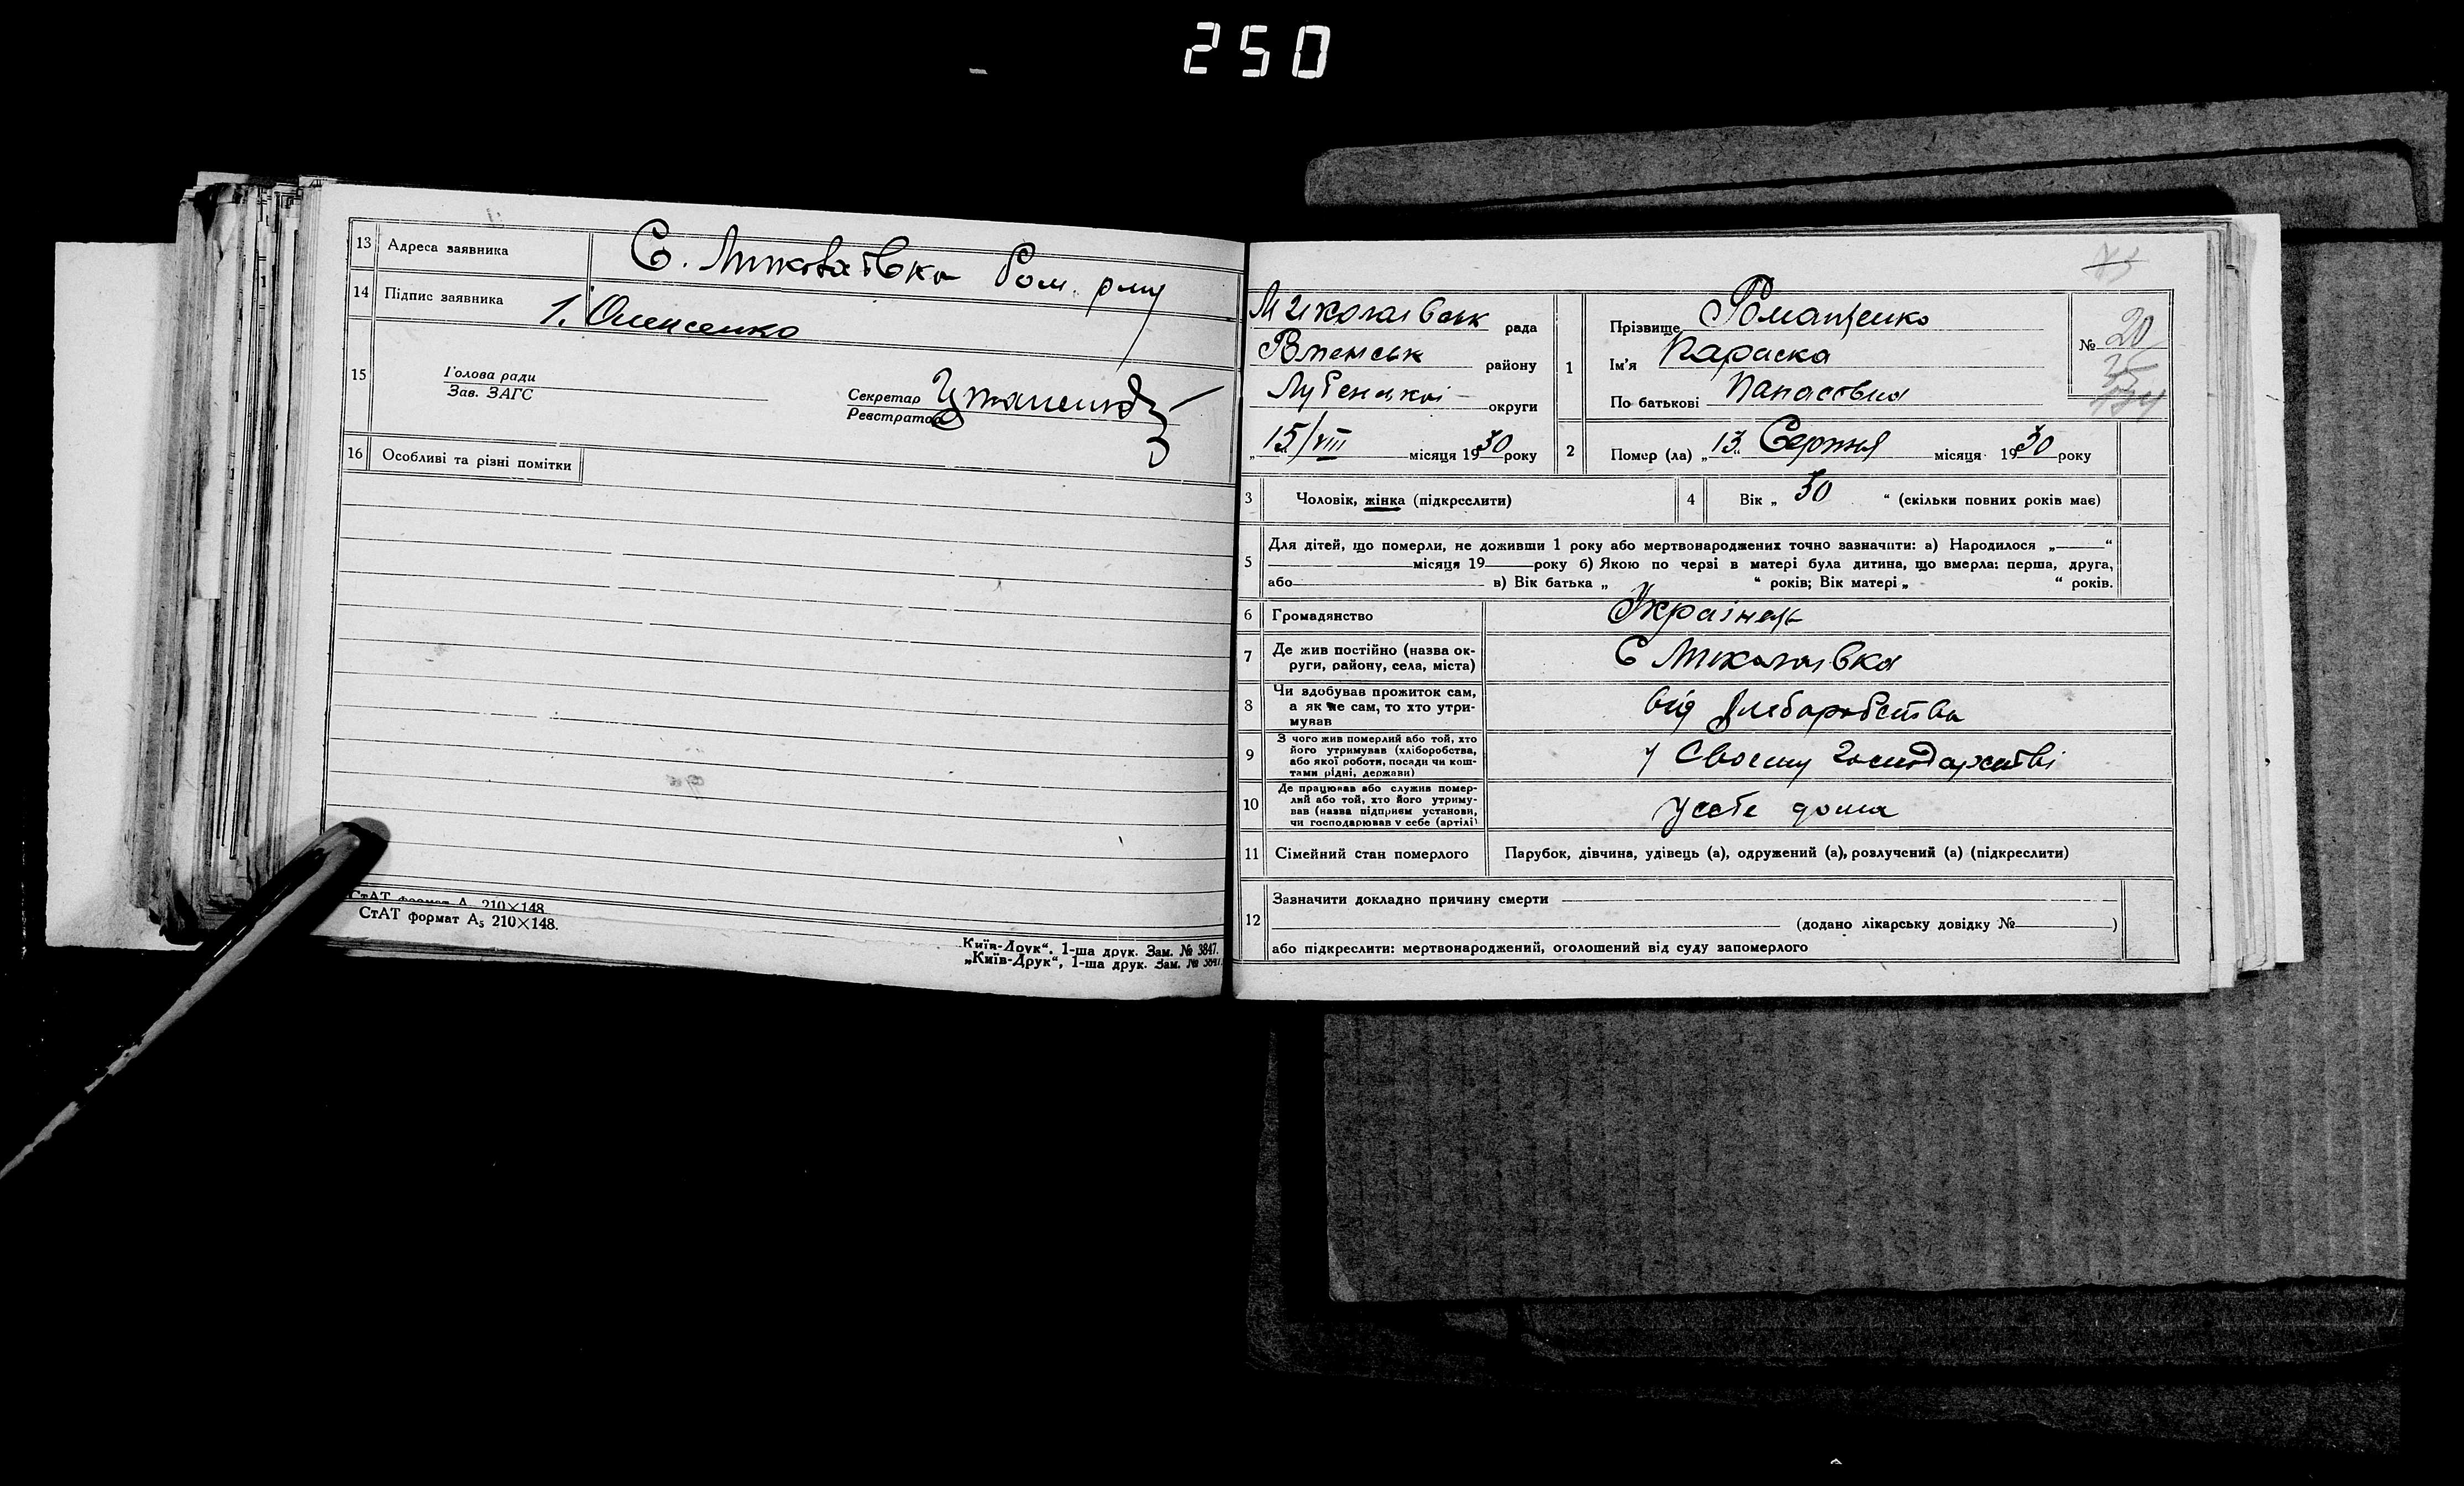 250
13 Адреса заявника С. Миколаївка Ром. р-ну
14 Підпис заявника Олексенко
15 Голова ради
Зав. ЗАГС
Секретар
Реєстратор
16 Особливі та різні помітки
СтАТ формат А₅ 210×148.
СтАТ формат А₅ 210×148.
Київ-Друк“, 1-ша друк. Зам. № 3847.
„Київ-Друк“, 1-ша друк. Зам. № 3847.
Миколаївськ рада
району
Лубенської округи
„15/VIII місяця 1930 року
1 Прізвище Романенко
Ім'я Параска
По батькові Панасовна
№ 20
2 Помер (ла) „13“ Серпня місяця 1930 року
3 Чоловік, жінка (підкреслити)
4 Вік „ 50 “ (скільки повних років має)
5 Для дітей, що померли, не доживши 1 року або мертвонароджених точно зазначити: а) Народилося „ “
місяця 19 року б) Якою по черзі в матері була дитина, що вмерла: перша, друга,
або в) Вік батька „ “ років; Вік матері „ “ років.
6 Громадянство Українськ
7 Де жив постійно (назва ок-
руги, району, села, міста) С Миколаївка
8 Чи здобував прожиток сам,
а як не сам, то хто утри-
мував від хлеборобства
9 З чого жив померлий або той, хто
його утримував (хліборобства,
або якої роботи, посади чи кош-
тами рідні, держави) у своему господарстві
10 Де працював або служив помер-
лий або той, хто його утриму-
вав (назва підприєм установи,
чи господарював у себе (артілі) у себе дома
11 Сімейний стан померлого Парубок, дівчина, удівець (а), одружений (а), розлучений (а) (підкреслити)
12 Зазначити докладно причину смерти
(додано лікарську довідку № )
або підкреслити: мертвонароджений, оголошений від суду запомерлого